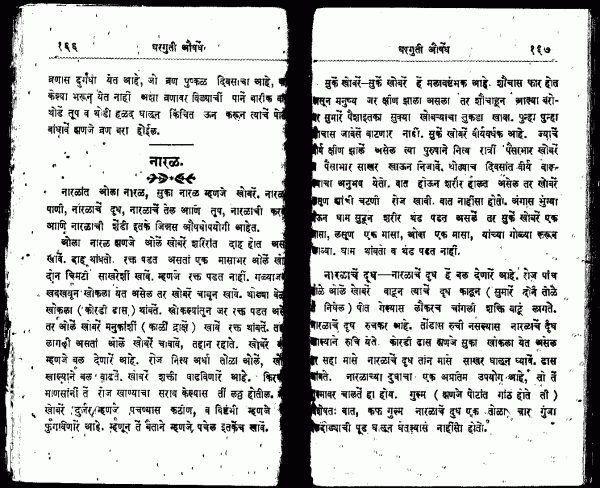 १६६ घरगुती औषधें
व्रणास दुर्गंधी येत आहे, जो व्रण पुष्कळ दिवसाचा आहे,
केश्या भरून येत नाहीं अशा व्रणावर विड्याचीं पानें बारीक
थोडें तूप व थोडी हळद घालून किंचित ऊन करून त्याचें
बांधावें ह्मणजे व्रण बरा होईल.
नारळ.
नारळांत ओला नारळ, सुका नारळ ह्मणजे खोबरें. नारळ
पाणी, नारळाचें दूध, नारळाचें तेल आणि तूप, नारळाची
आणि नारळाची शेंडी इतके जिन्नस औषधोपयोगी आहेत.
ओला नारळ ह्मणजे ओलें खोबरें शरिरांत दाह होत
खावें. दाह थांबतो. रक्त पडत असतां एक मासाभर ओलें
दोन चिमटी साखरेशीं खावें. ह्मणजे रक्त पडत नाहीं. गळ्यान
खवखवून खोकला येत असेल तर खोबरें चावून खावें. थोड्या
खोकला (कोरडी ढास) थांबतो. खोकल्यांतून जर रक्त पडत
तर ओलें खोबरें मनुकांशीं (काळीं द्राक्षें) खावें रक्त थांबतें.
लागली असतां ओलें खोबरें चघावें, तहान रहाते. खोबरें
ह्मणजे बल देणारें आहे. रोज नित्य अर्धा तोळा ओलें,
खाल्यानें बल वाढतें. खोबरें शक्ती वाढविणारें आहे.
माणसांनीं तें रोज खाण्याचा सराव केल्यास तीं लठ्ठ होतील.
खोबरें दुर्जर ह्मणजे पचण्यास कठीण, व विष्टंभी ह्मणजे
फुगविणारें आहे. ह्मणून तें बेतानें ह्मणजे, पचेल इतकेंच खावें.
घरगुती औषधें १६७
सुकें खोबरें—सुकें खोबरें हें मलावष्टंभक आहे. शौचास फार होत
असून मनुष्य जर क्षीण झाला असला तर शौचाहून आल्या बरो-
बर सुमारें पैशाइतका सुक्या खोबऱ्याचा तुकडा खावा. पुन्हा पुन्हा
शौचास जावेंसें वाटणार नाहीं. सुकें खोबरें वीर्यवर्धक आहे. ज्याचें
वीर्य क्षीण झालें असेल त्या पुरुषानें नित्य रात्रीं पैसाभार खोबरें
पैसाभार साखर खाऊन निजावें. थोड्याच दिवसांत वीर्य
अनुभव येतो. वात होऊन शरीर हालत असेल तर खोबरें
लसूण ह्यांची चटणी रोज खावी. वात नाहींसा होतो. अंगास
घाम सुटून शरीर थंड पडत असलें तर सुकें खोबरें एक
मासा, लसूण एक मासा, ओवा एक मासा, यांच्या गोळ्या करून
घाम थांबतो व थंड पडत नाहीं.
नारळाचें दूध—नारळाचें दूध हें बल देणारें आहे. रोज पांच
तोळे ओलें खोबरें वाटून त्याचें दूध काढून (सुमारें दोन तोळे
निघेल) पीत गेल्यास लौकरच चांगली शक्ति वाढूं लागते.
नारळाचें दूध रुचकर आहे. तोंडास रुची नसल्यास नारळाचें दूध
प्याल्यानें रुचि येते. कोरडी ढास ह्मणजे सुका खोकला येत असेल
तर सहा मासे नारळाचें दूध तीन मासे साखर घालून प्यावें. ढास
थांबते. नारळाच्या दुधाचा एक अप्रतिम उपयोग आहे, तो तें
गुल्मावर चालतें हा होय. गुल्म (ह्मणजे पोटांत गांठ होते ती)
विशेषतः वात, कफ गुल्म नारळाचें दूध एक तोळा चार गुंजा
पूड घालून घेतल्यास नाहींसा होतो.